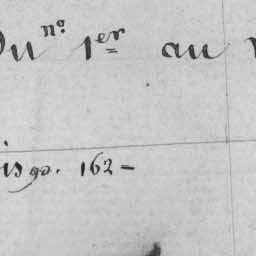 Du nº 1er au
is 90. 162 -